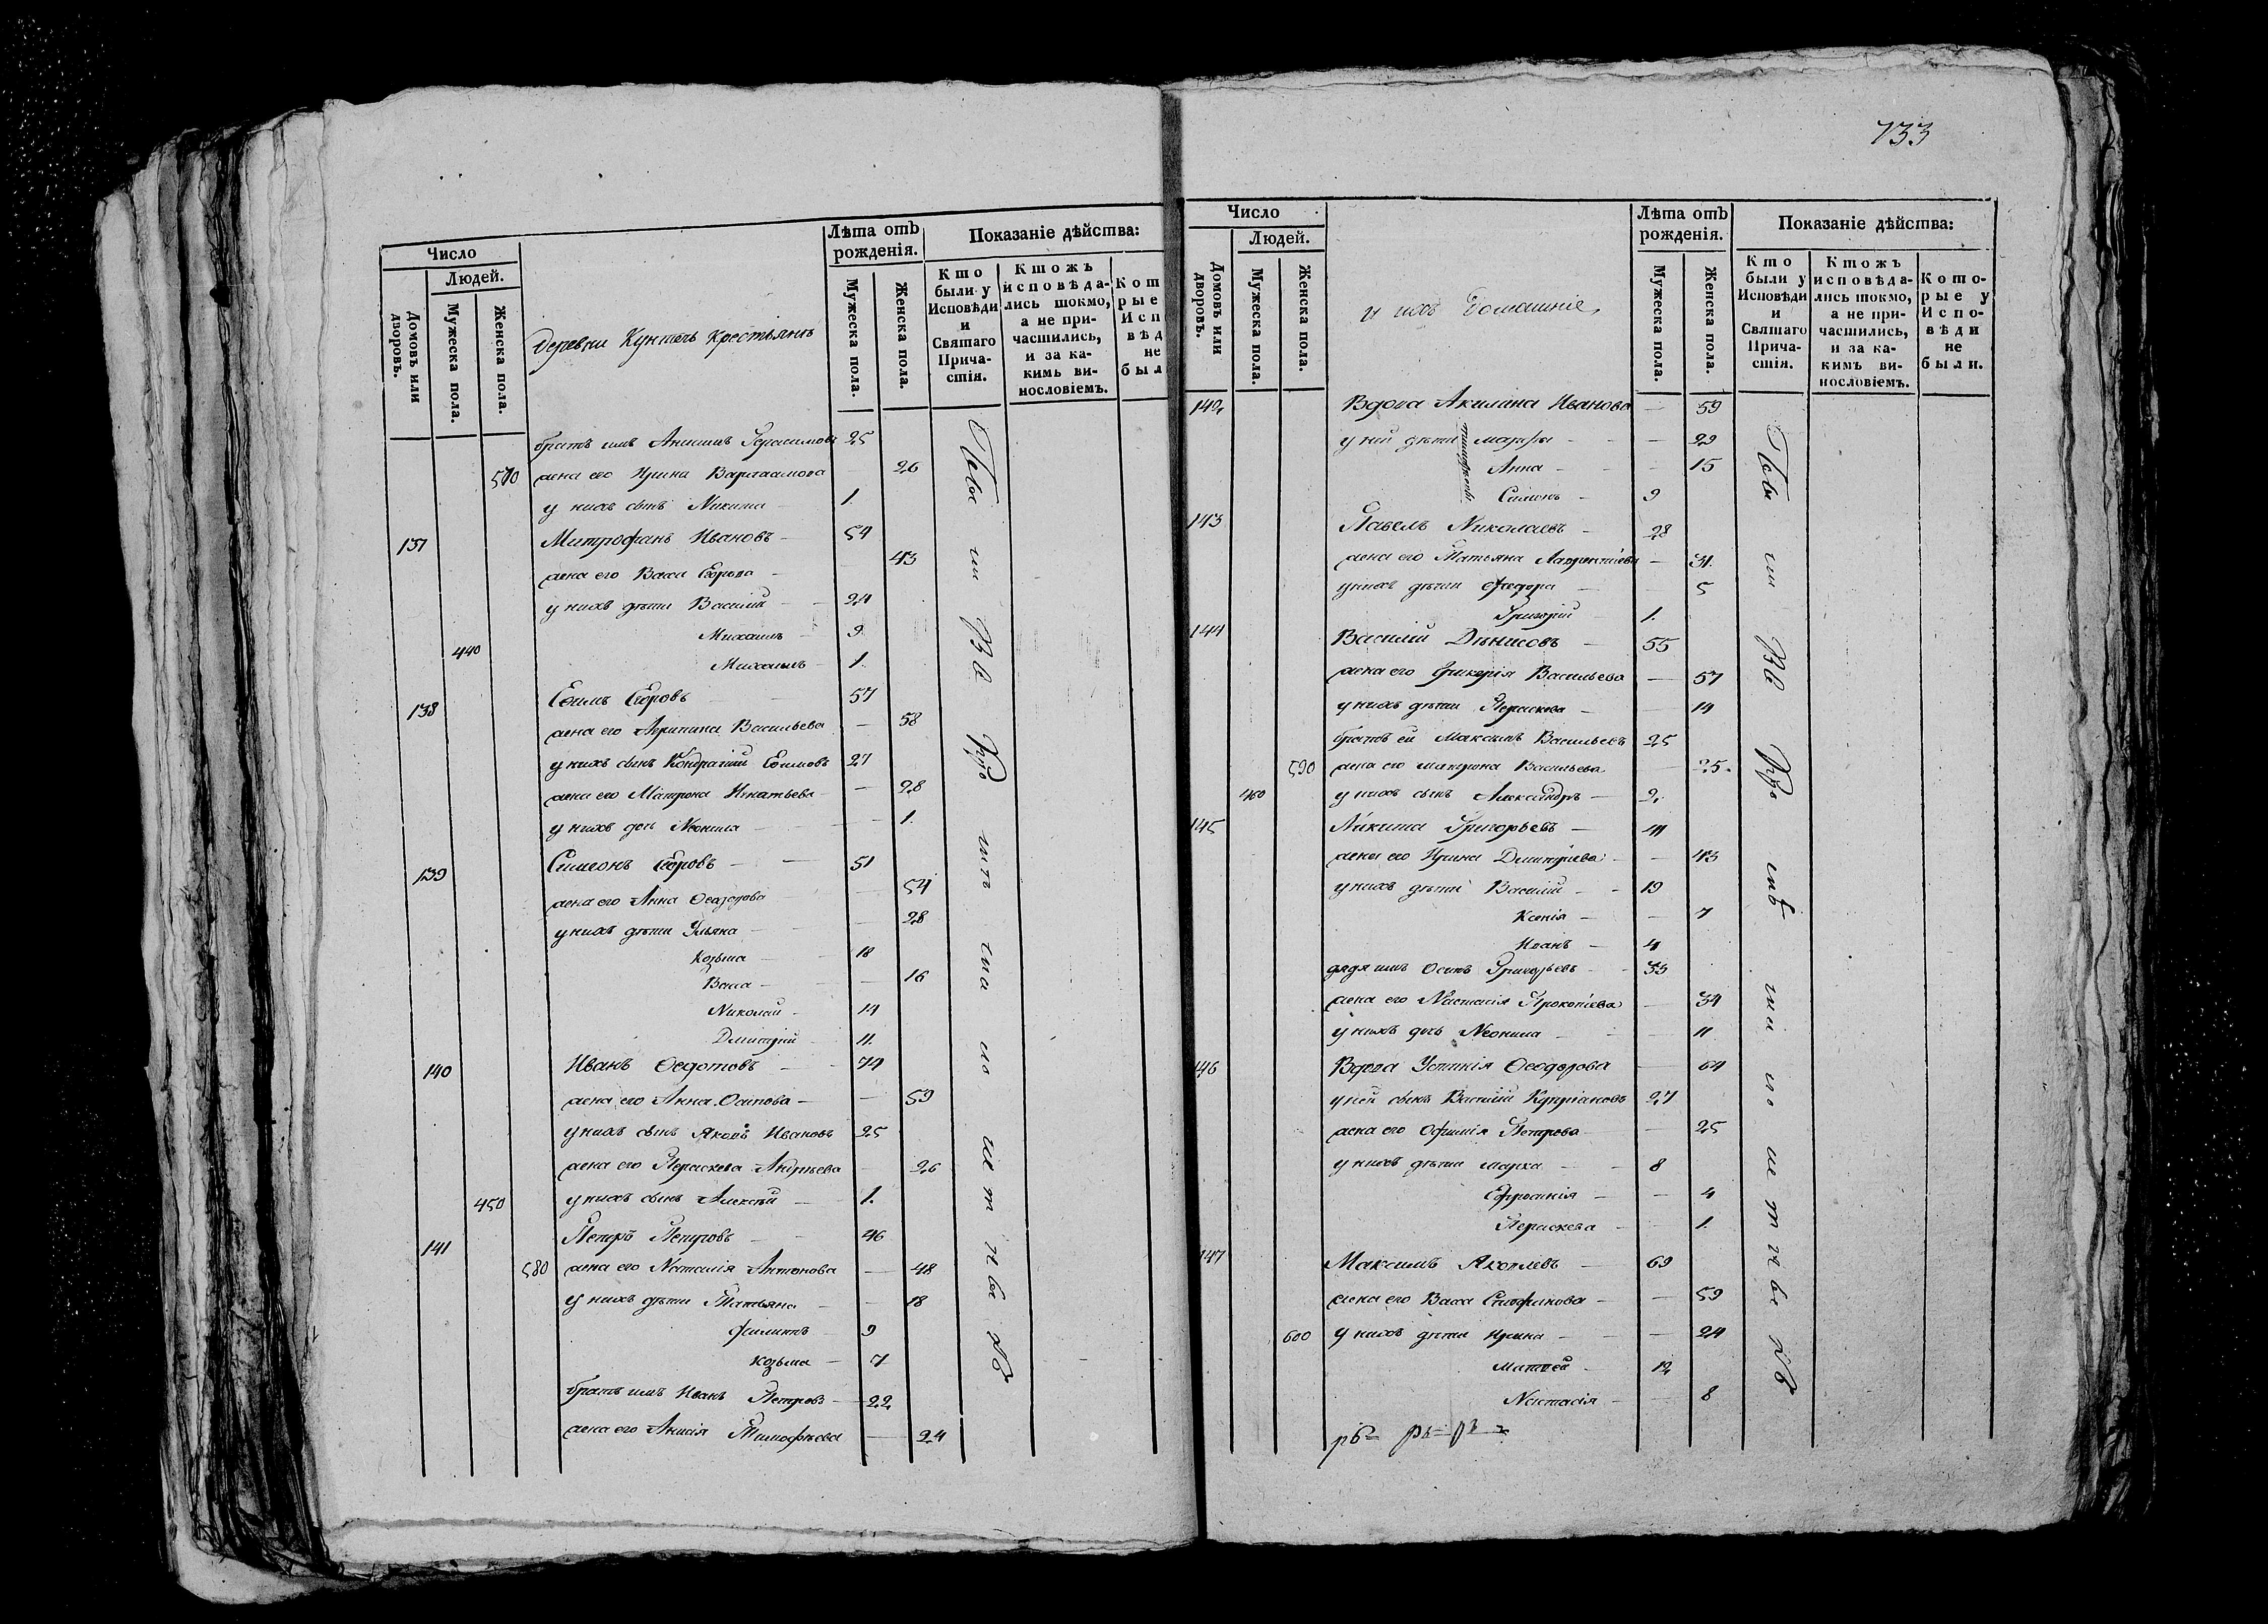 Число
Людей.
Домовъ или дворовъ.
Мужеска пола.
Женска пола.
Деревни Крестьянъ
Лѣта отъ рожденія.
Мужеска пола.
Женска пола.
Показаніе дѣйства:
Кто были у Исповѣди и Святаго Прича-стія.
Ктожъ исповѣда-лись токмо, а не при-частились, и за ка-кимъ ви-нословіемъ.
Кот рые Исп вѣд не был
братъ имъ Герасимовъ 25
570 жена его Ирина Варлаамова — 26
у нихъ сынъ Никита — 1.
137 Митрофанъ Ивановъ — 54
жена его Васа Егорова — 43
у нихъ дѣти Василій — 24
Михаилъ — 9
440 Михаилъ — 1.
138 Ефимъ Егоровъ 57
жена его Васильева — 58
у нихъ сынъ Кондратій Ефимовъ 27
жена его Матрона Игнатьева — 28
у нихъ дочь Неонила — 1.
139 Симеонъ Егоровъ — 51
жена его Анна Ѳеодорова — 54
у нихъ дѣти Ульяна — 28
Козьма — 18
Васа — 16
Николай — 14
Дмитрій — 11.
140 Иванъ Ѳедотовъ — 74
жена его Анна Осипова — 59
у нихъ сынъ Яковъ Ивановъ 25
жена его Параскева Андрѣева — 26
450 у нихъ сынъ Алексѣй — 1.
141 Петръ Петровъ — 46
580 жена его Наталія Антонова — 48
у нихъ дѣти Татьяна — 18
Филиппъ — 9
Козьма — 7
братъ имъ Иванъ Петровъ — 22
жена его Анисія Тимофѣева — 24
733
Число
Людей.
Домовъ или дворовъ.
Мужеска пола.
Женска пола.
и ихъ Домашніе,
Лѣта отъ рожденія.
Мужеска пола.
Женска пола.
Показаніе дѣйства:
Кто были у Исповѣди и Святаго Прича-стія.
Ктожъ исповѣда-лись токмо, а не при-частились, и за ка-кимъ ви-нословіемъ.
Кото-рые у Испо-вѣди не были.
142 Вдова Акилина Иванова — 59
у ней дѣти Марфа — 29
Анна — 15
Симонъ — 9
143 Павелъ Николаевъ — 28
жена его Татьяна Лаврентіева — 31.
у нихъ дѣти — 5
Григорій — 1.
144 Василій Дѣнисовъ — 55
жена его Гликерія Васильева — 57
у нихъ дѣти Параскева — 14
братъ ей Максимъ Васильевъ 25
590 жена его Матрона Васильева — 25.
460 у нихъ сынъ Александръ — 2.
145 Никита Григорьевъ — 41
жена его Ирина Дмитріева — 43
у нихъ дѣти Василій — 19
Ксенія — 7
Иванъ — 4
дядя имъ Осипъ Григорьевъ — 35
жена его Настасія Прокопіева — 34
у нихъ дочь Неонила — 11
146 Вдова Устинія Ѳеодорова — 64
у ней сынъ Василій Купріановъ 27
жена его Офимія Петрова — 25
у нихъ дѣти — 8
Ефросинія — 4
Параскева — 1.
147 Максимъ Яковлевъ — 69
жена его Васа — 59
600 у нихъ дѣти Ирина — 24
Матвей — 12
Настасія — 8